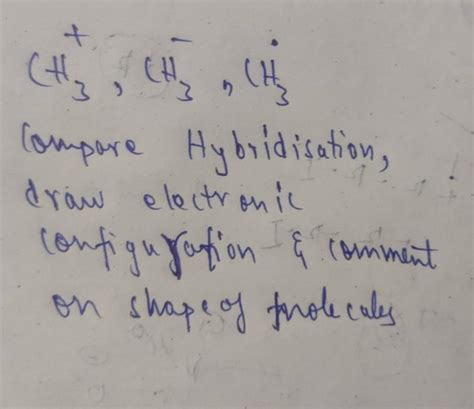 CH₃⁺, CH₃⁻, CH₃•
Compare Hybridisation,
draw electronic
configuration & comment
on shape of molecules